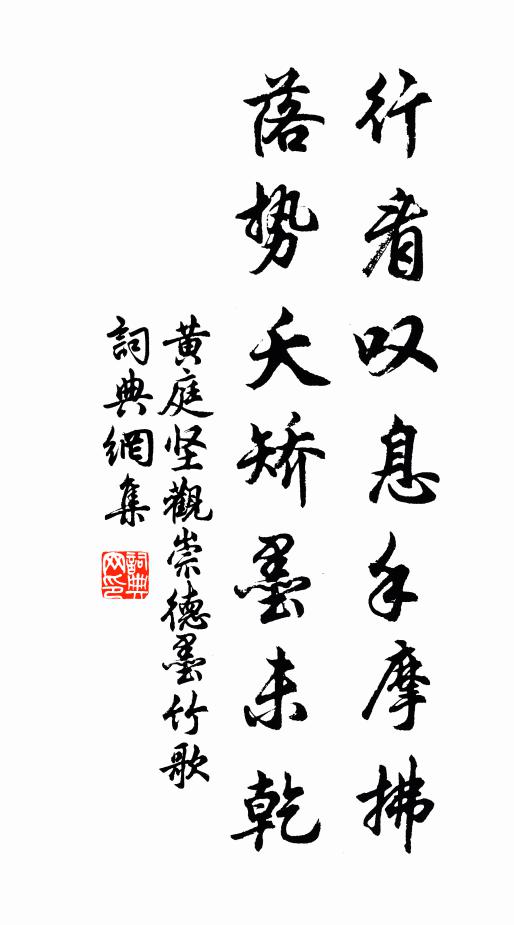 行者叹息手摩拂
落势夭矫墨未乾
黄庭坚觀崇德墨竹歌
詞典網集
詞典网印